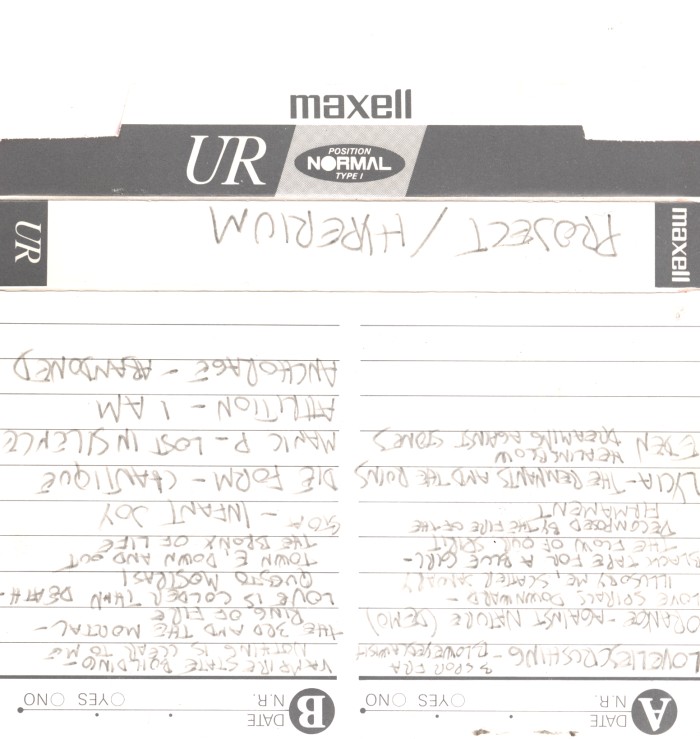 maxell
UR
POSITION
NORMAL
TYPE I
UR
PROJECT / HYPERIUM
maxell
A
DATE
N.R. YES NO
LOVELIESCRUSHING -
ORANGE - AGAINST NATURE (DEMO)
LOVE SPIRALS DOWNWARD -
ILLUSORY ME, SCATTER JANUARY
BLACK TAPE FOR A BLUE GIRL -
THE FLOW OF OUR SPIRIT
DECOMPOSED BY THE FIRE OF THE
FIRMAMENT
LYCIA - THE REMNANTS AND THE RUINS
EDEN HEALINGBOW
DREAMING AGAINST STONES
B
DATE
N.R. YES NO
VAMPIRE STATE BUILDING -
NOTHING IS CLEAR TO ME
THE 3RD AND THE MORTAL -
RING OF FIRE
LOVE IS COLDER THAN DEATH -
QUESTO MOSTRASI
TOWN E DOWN AND OUT
THE BRONX OF LIFE
STOA - INFANT JOY
DIE FORM - CHANTIQUE
MANIC P - LOST IN SILENCE
ATTRITION - I AM
ANCHORAGE - ABANDONED